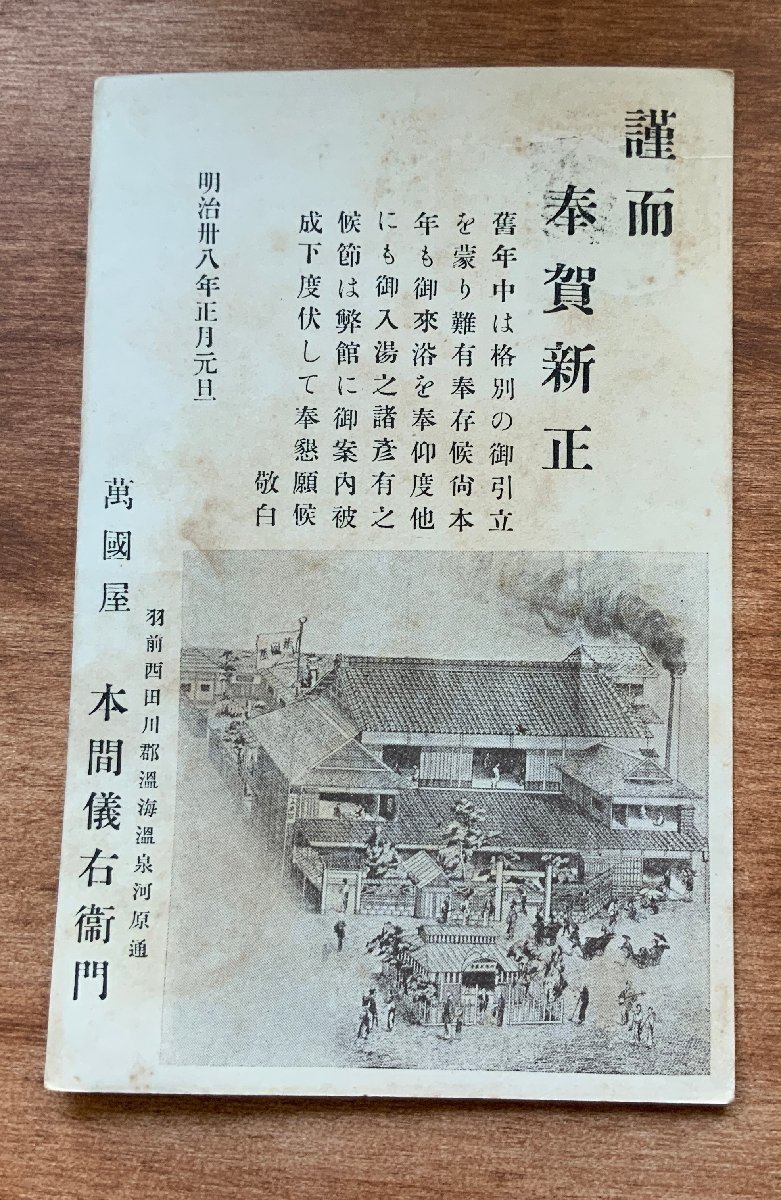 謹而
奉賀新正
舊年中は格別の御引立
を蒙り難有奉存候尙本
年も御來浴を奉仰度他
にも御入湯之諸彥有之
候節は弊館に御案內被
成下度伏して奉懇願候
敬白
明治卅八年正月元旦
羽前西田川郡溫海溫泉河原通
萬國屋 本間儀右衞門